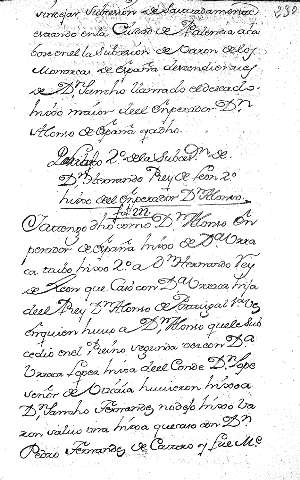 230
sin dejar Subcesion de
creando en la Ciudad de Palencia aca
bose en el la subcesion de Varon de los
Monarcas de España descendientes
de Dn Sancho llamado el deseado
hixo maior del Emperador Dn
Alonso de España
2º de la Subcesn de
Dn Hernando Rey de Leon 2º
hixo del Emperador Dn Alonso
Ya tengo dho como Dn Alonso Em
perador de España hixo de Da Urra
ca tubo hixo 2º a Dn Hernando Rey
de Leon que Casó con Da Urraca hija
del Rey Dn Alonso de Portugal
en quien hubo a Dn Alonso que le Sub
cedio en el Reino segunda vez con Da
Urraca Lopez hixa del Conde Dn Lope
señor de Vizcaia hubieron hixo a
Dn Sancho Fernandez no dejo hixo Va
ron salvo una hixa que caso con Dn
Pedro Fernandez de Castro y fue